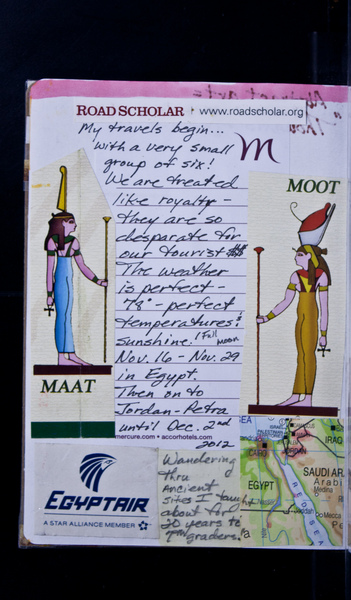 ROAD SCHOLAR
www.roadscholar.org
My travels begin...
with a very small
group of six!
m
We are treated
like royalty -
they are so
desparate for
our tourist $$$
The weather
is perfect -
78° - perfect
temperatures &
sunshine. 1 Full Moon
Nov. 16 - Nov. 29
in Egypt.
Then on to
Jordan - Petra
until Dec. 2nd
2012
mercure.com • accorhotels.com
MAAT
MOOT
EGYPTAIR
A STAR ALLIANCE MEMBER
Wandering
thru
Ancient
sites I taught
about for
20 years to
7th graders!
SEA
IRAQ
CAIRO
JORDAN
SAUDI AR
Arabi
EGYPT
Medina
RED SEA
Jeddah
Mecca